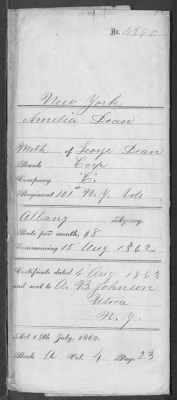 No. 4390
New York
Amelia Dean
Moth. of George Dean
Rank Corp
Company "C"
Regiment 101st N.Y. Vols
Albany Agency.
Rate per month, $8
Commencing 15 Aug 1862
Certificate dated 4 Aug 1863
and sent to A. B. Johnson
Utica
N.Y.
Act 14th July, 1862.
Book A Vol. 4 Page 23